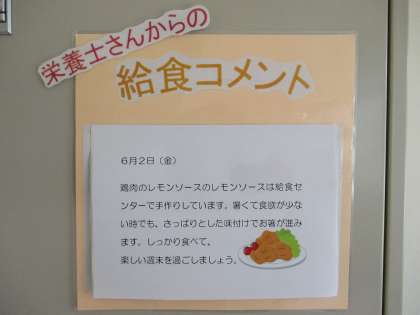 栄養士さんからの
給食コメント
6月2日（金）
鶏肉のレモンソースのレモンソースは給食セ
ンターで手作りしています。暑くて食欲が少な
い時でも、さっぱりとした味付けでお箸が進み
ます。しっかり食べて、
楽しい週末を過ごしましょう。